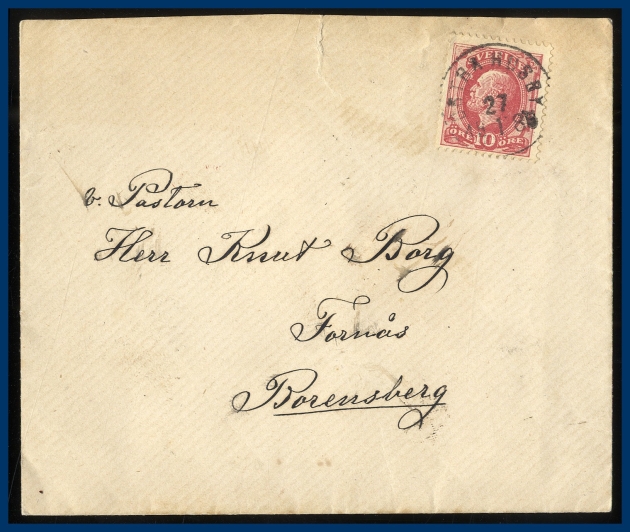 SVERIGE
10
ÖRE ÖRE
27
v. Pastorn
Herr Knut Borg
Fornås
Borensberg